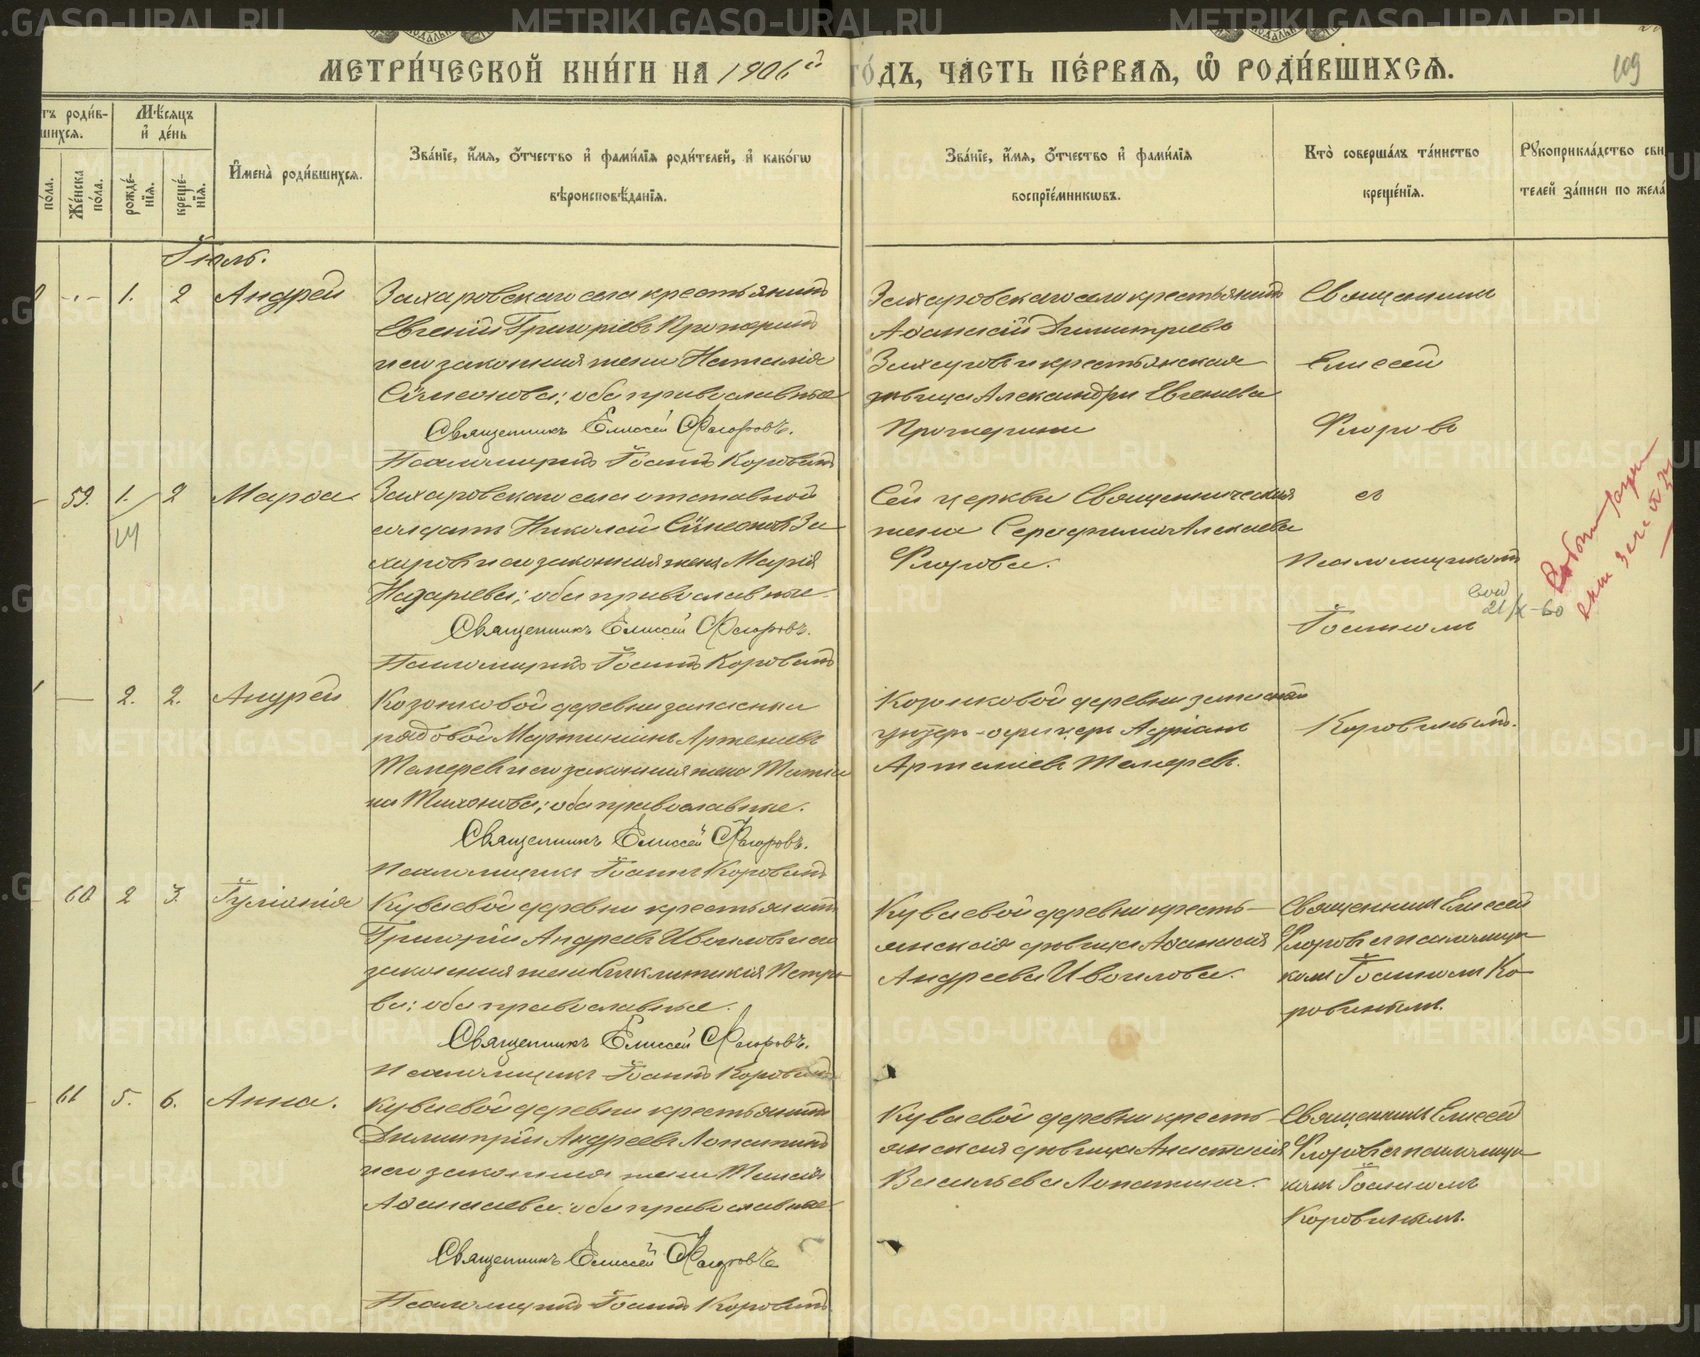 МЕТРИ́ЧЕСКОЙ КНИ́ГИ НА 1906й ГО́ДЪ, ЧАСТЬ ПЕ́РВАЯ, Ѽ РОДИ́ВШИХСЯ.
109
тъ роди́в-
шихся.
Мѣ́сяцъ
и҆ де́нь
по́ла.
Же́нска
по́ла.
рожде́-
нїя.
креще́-
нїя.
И҆мена̀ роди́вшихся.
Зва́нїе, и҆́мя, ѻ҆́тчество и҆ фами́лїя роди́телей, и҆ како́гѡ
вѣроисповѣ́данїя.
Зва́нїе, и҆́мя, ѻ҆́тчество и҆ фами́лїя
воспрїе́мникѡвъ.
Кто̀ соверша́лъ та́инство
креще́нїя.
Рꙋкоприкла́дство сви
телей за́писи по жела́
Іюль.
1. 2 Андрей
Захаровскаго села крестьянинъ
Евгеній Григоріевъ Протеринъ
и его законная жена Наталія
Сѵмеонова; оба православные
Священникъ Елиссей Флоровъ.
Псаломщикъ Іоаннъ Коровинъ
Захаровскаго села крестьянинъ
Аѳанасій Димитріевъ
Захаровъ и крестьянская
дѣвица Александра Евгеніева
Протерина
Священникъ
Елиссей
Флоровъ
59. 1. 2 Марѳа
Захаровскаго села отставной
солдатъ Николай Сѵмеоновъ За-
харовъ и его законная жена Марія
Назарьева; оба православные.
Священникъ Елиссей Флоровъ.
Псаломщикъ Іоаннъ Коровинъ
Сей церкви Священническая
жена Серафима Алексѣева
Флорова.
съ
псаломщикомъ
Іоанномъ
21/X-60
— 2. 2. Андрей
деревни запасный
рядовой Мартиніанъ Артеміевъ
и его законная жена Татіа-
на Тихонова; оба православные.
Священникъ Елиссей Флоровъ.
Псаломщикъ Іоаннъ Коровинъ
деревни запасный
унтеръ-офицеръ Адріанъ
Артеміевъ
Коровинымъ.
60 2 3. Іуліанія
Куваевой деревни крестьянинъ
Григорій Андреевъ Ивойловъ и его
законная жена Синклитикія Петро-
ва; оба православные.
Священникъ Елиссей Флоровъ.
Псаломщикъ Іоаннъ Коровинъ
Куваевой деревни кресть-
янская дѣвица Аѳанасія
Андреева Ивойлова.
Священникъ Елиссей
Флоровъ съ псаломщи-
комъ Іоанномъ Ко-
ровинымъ.
61 5. 6. Анна.
Куваевой деревни крестьянинъ
Димитрій Андреевъ Лопатинъ
и его законная жена Таисія
Аѳанасьева: оба православные
Священникъ Елиссей Флоровъ
Псаломщикъ Іоаннъ Коровинъ
Куваевой деревни кресть-
янская дѣвица Анастасія
Васильева Лопатина.
Священникъ Елиссей
Флоровъ съ псаломщи-
комъ Іоанномъ
Коровинымъ.
METRIKI.GASO-URAL.RU